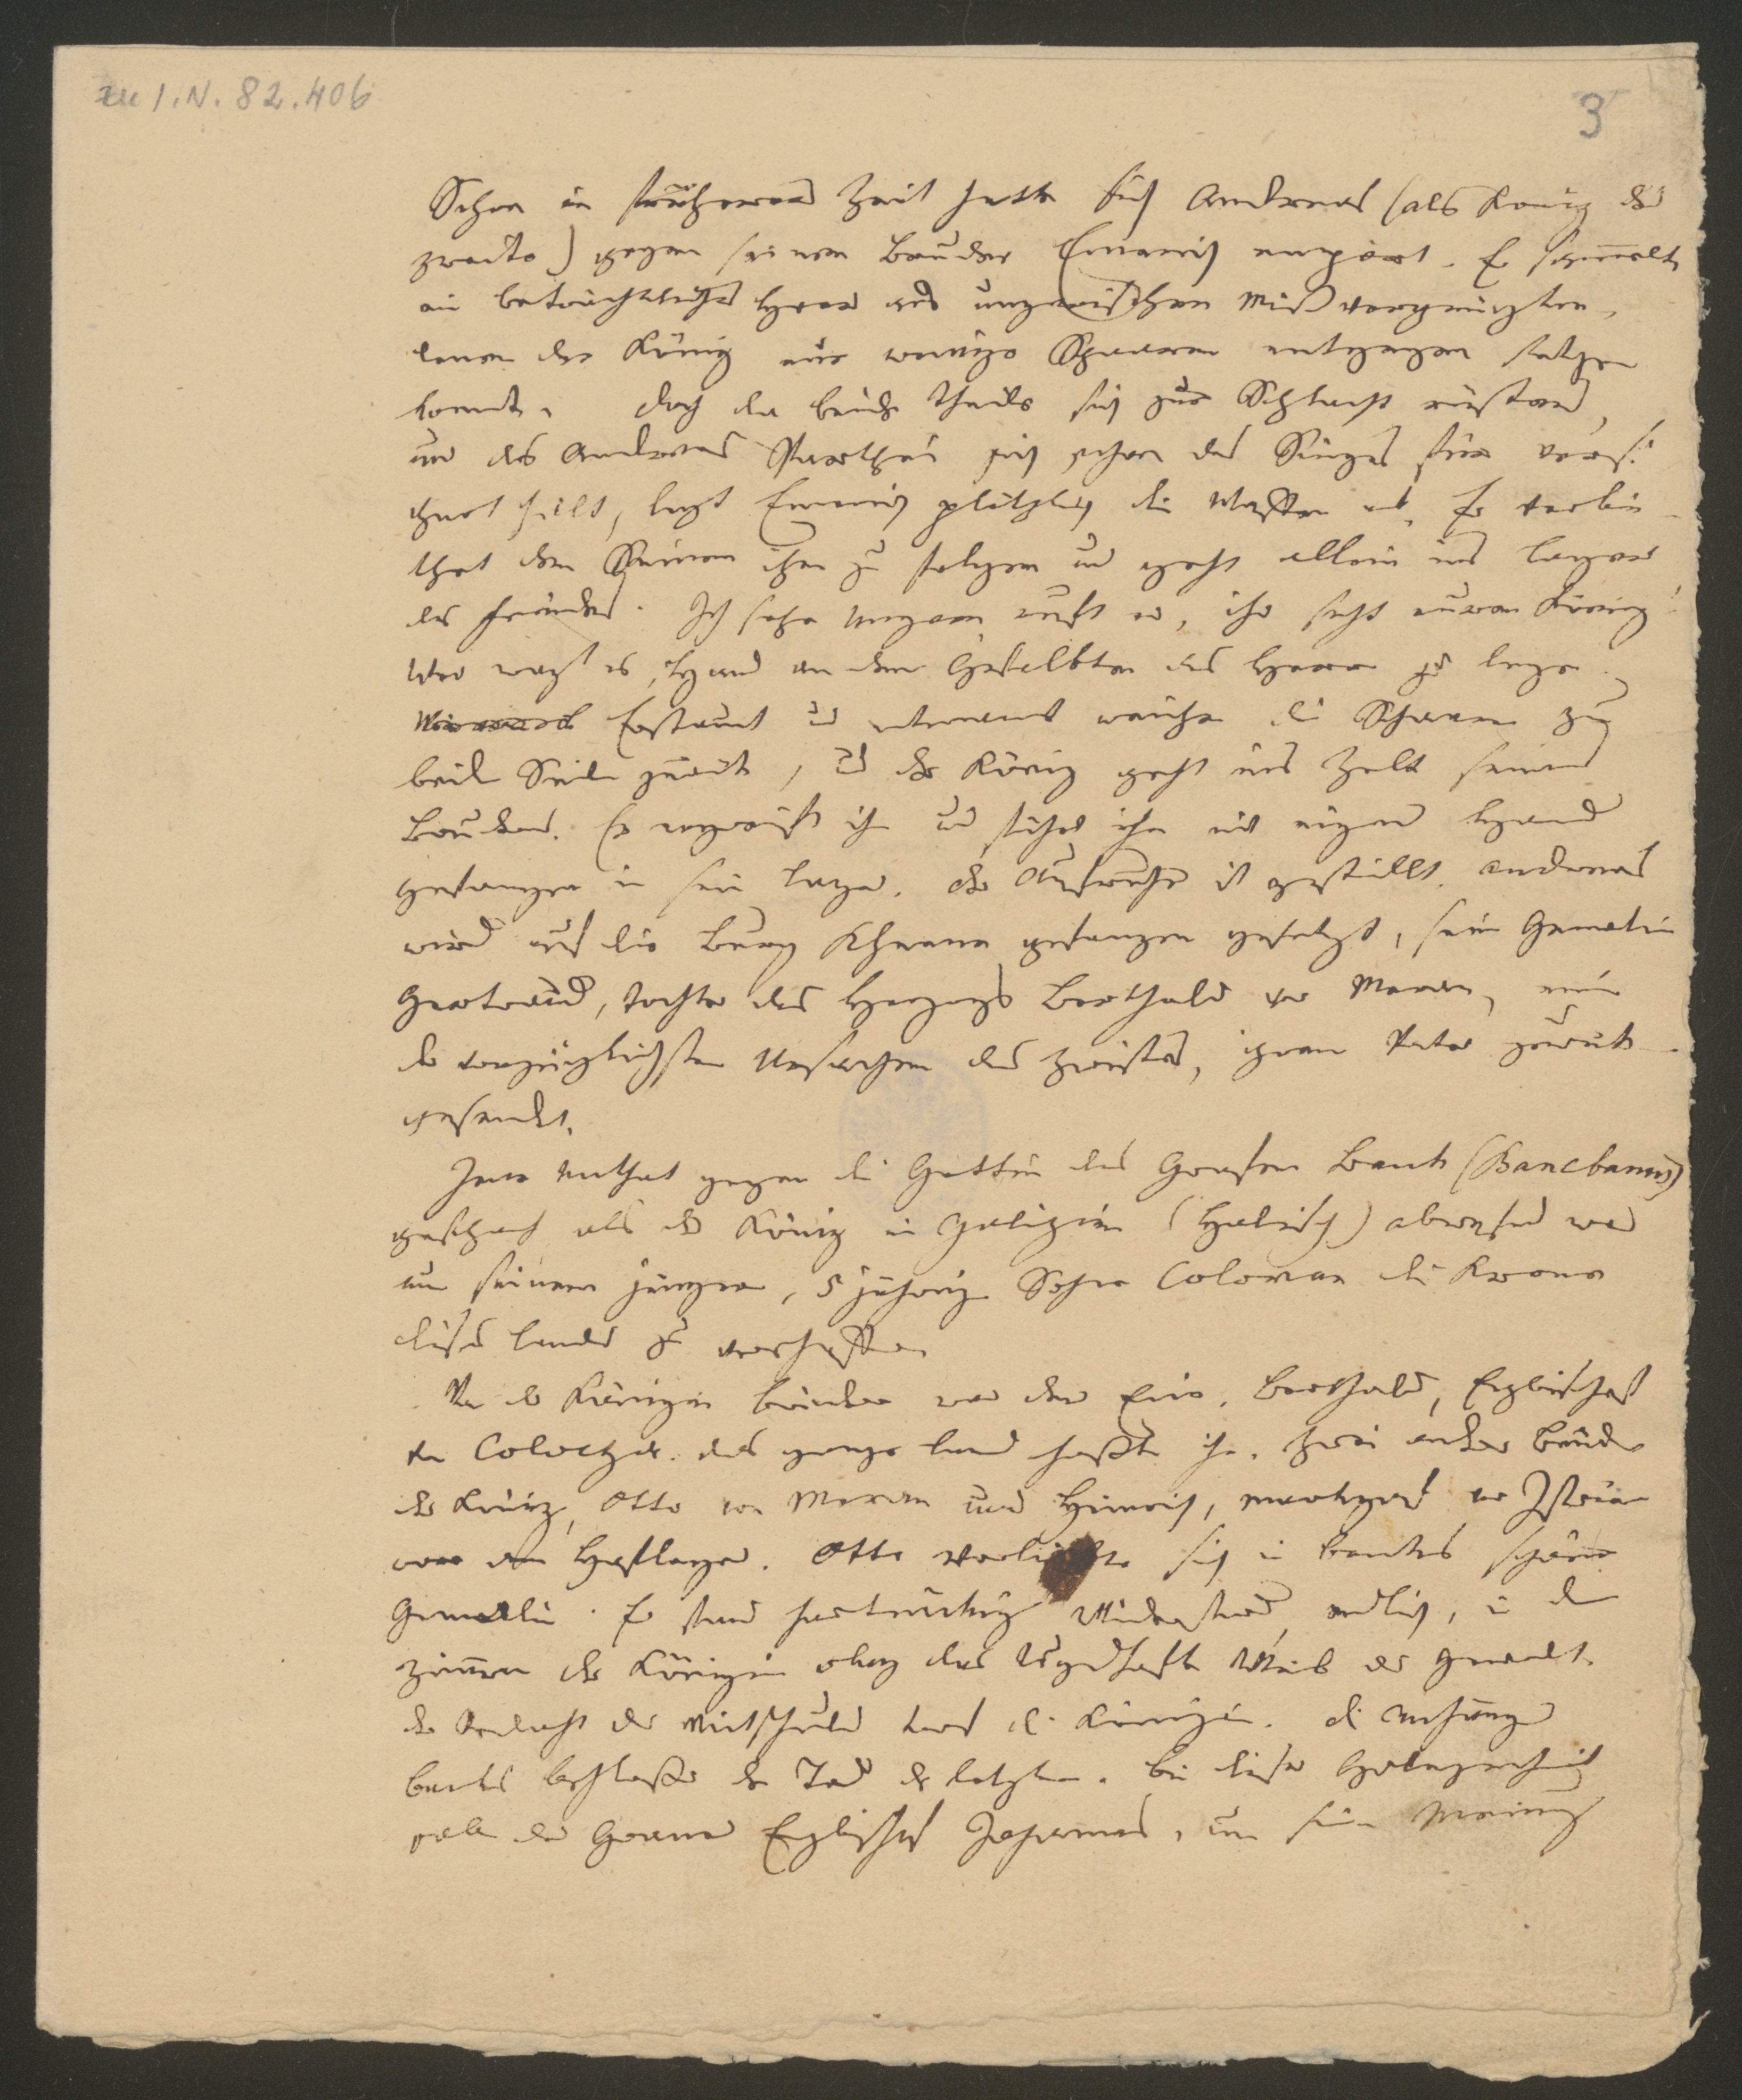 zu I.N. 82.406
3
Schon in früherer Zeit hatte sich Andreas (als König der
zweite) gegen seinen Bruder Emerich empört. Er sammelte
ein beträchtliches Heer aus ungarischen Mißvergnügten,
denen der König nur wenige Schaaren entgegen setzen
konnte. Doch da beide Theile sich zur Schlacht rüsten,
und des Andreas Parthei sich schon des Sieges für versi
chert hielt, legt Emerich plötzlich die Waffen ab. Er verbie
thet den Seinen ihm zu folgen und geht allein ins Lager
des Feindes. Ich sehe Ungarn ruft er, ihr seht euren König!
Wer wagt es, Hand an den Gesalbten des Herrn zu legen.
Erstaunt und weichen die Schaaren zu
beiden Seiten zurück, und der König geht ins Zelt seines
Bruders. Er ergreift ihn und führt ihn mit eigner Hand
gefangen in sein Lager. Der Aufruhr ist gestillt. Andreas
wird auf die Burg Kheene gefangen gesetzt, seine Gemalin
Gertraud, Tochter des Herzogs Berthold von Meran, eine
der vorzüglichsten Ursachen des Zwistes, ihrem Vater zurück
gesendet.
Jene Unthat gegen die Gattin des Grafen Bank (Bancbanus)
geschah als der König in Galizien (Halitsch) abwesend war
um seinem jüngern, 5 jährigen Sohne Coloman die Krone
dieses Landes zu verschaffen
Von der Königin Brüdern war der Eine, Berthold, Erzbischof
von Colocza. Das ganze Land haßte ihn. Zwei andere Brüder
der Königin, Otto von Meran und Heinrich, Markgraf von Istrien
waren am Hoflager. Otto verliebte sich in Banks schöne
Gemalin. Er fand hartnäckigen Widerstand, endlich, in den
Zimmern der Königin erlag das tugendhafte Weib der Gewalt.
Der Verdacht der Mitschuld traf die Königin. Die Anhänger
Banks beschloßen den Tod der letztern. Bei dieser Gelegenheit
der Graner Erzbischof Johannes, um seine Meinung